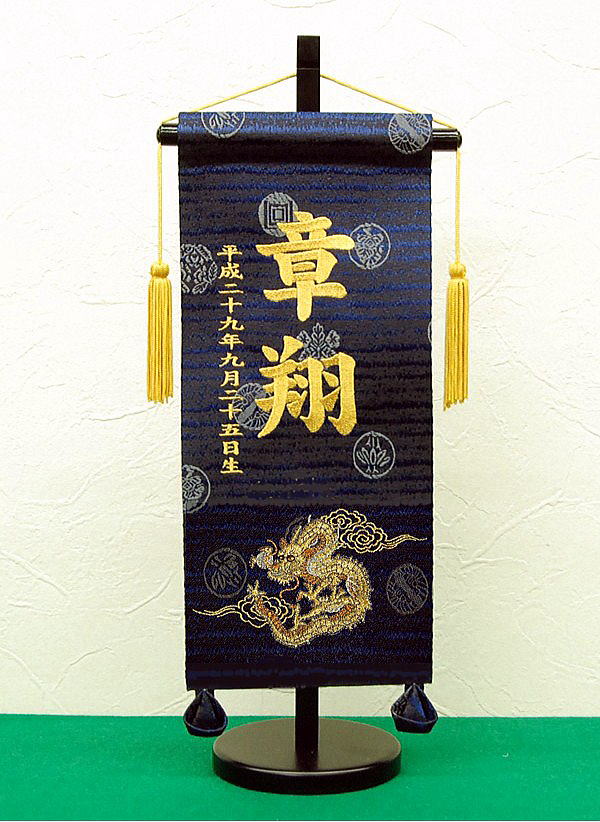 章翔
平成二十九年九月二十五日生